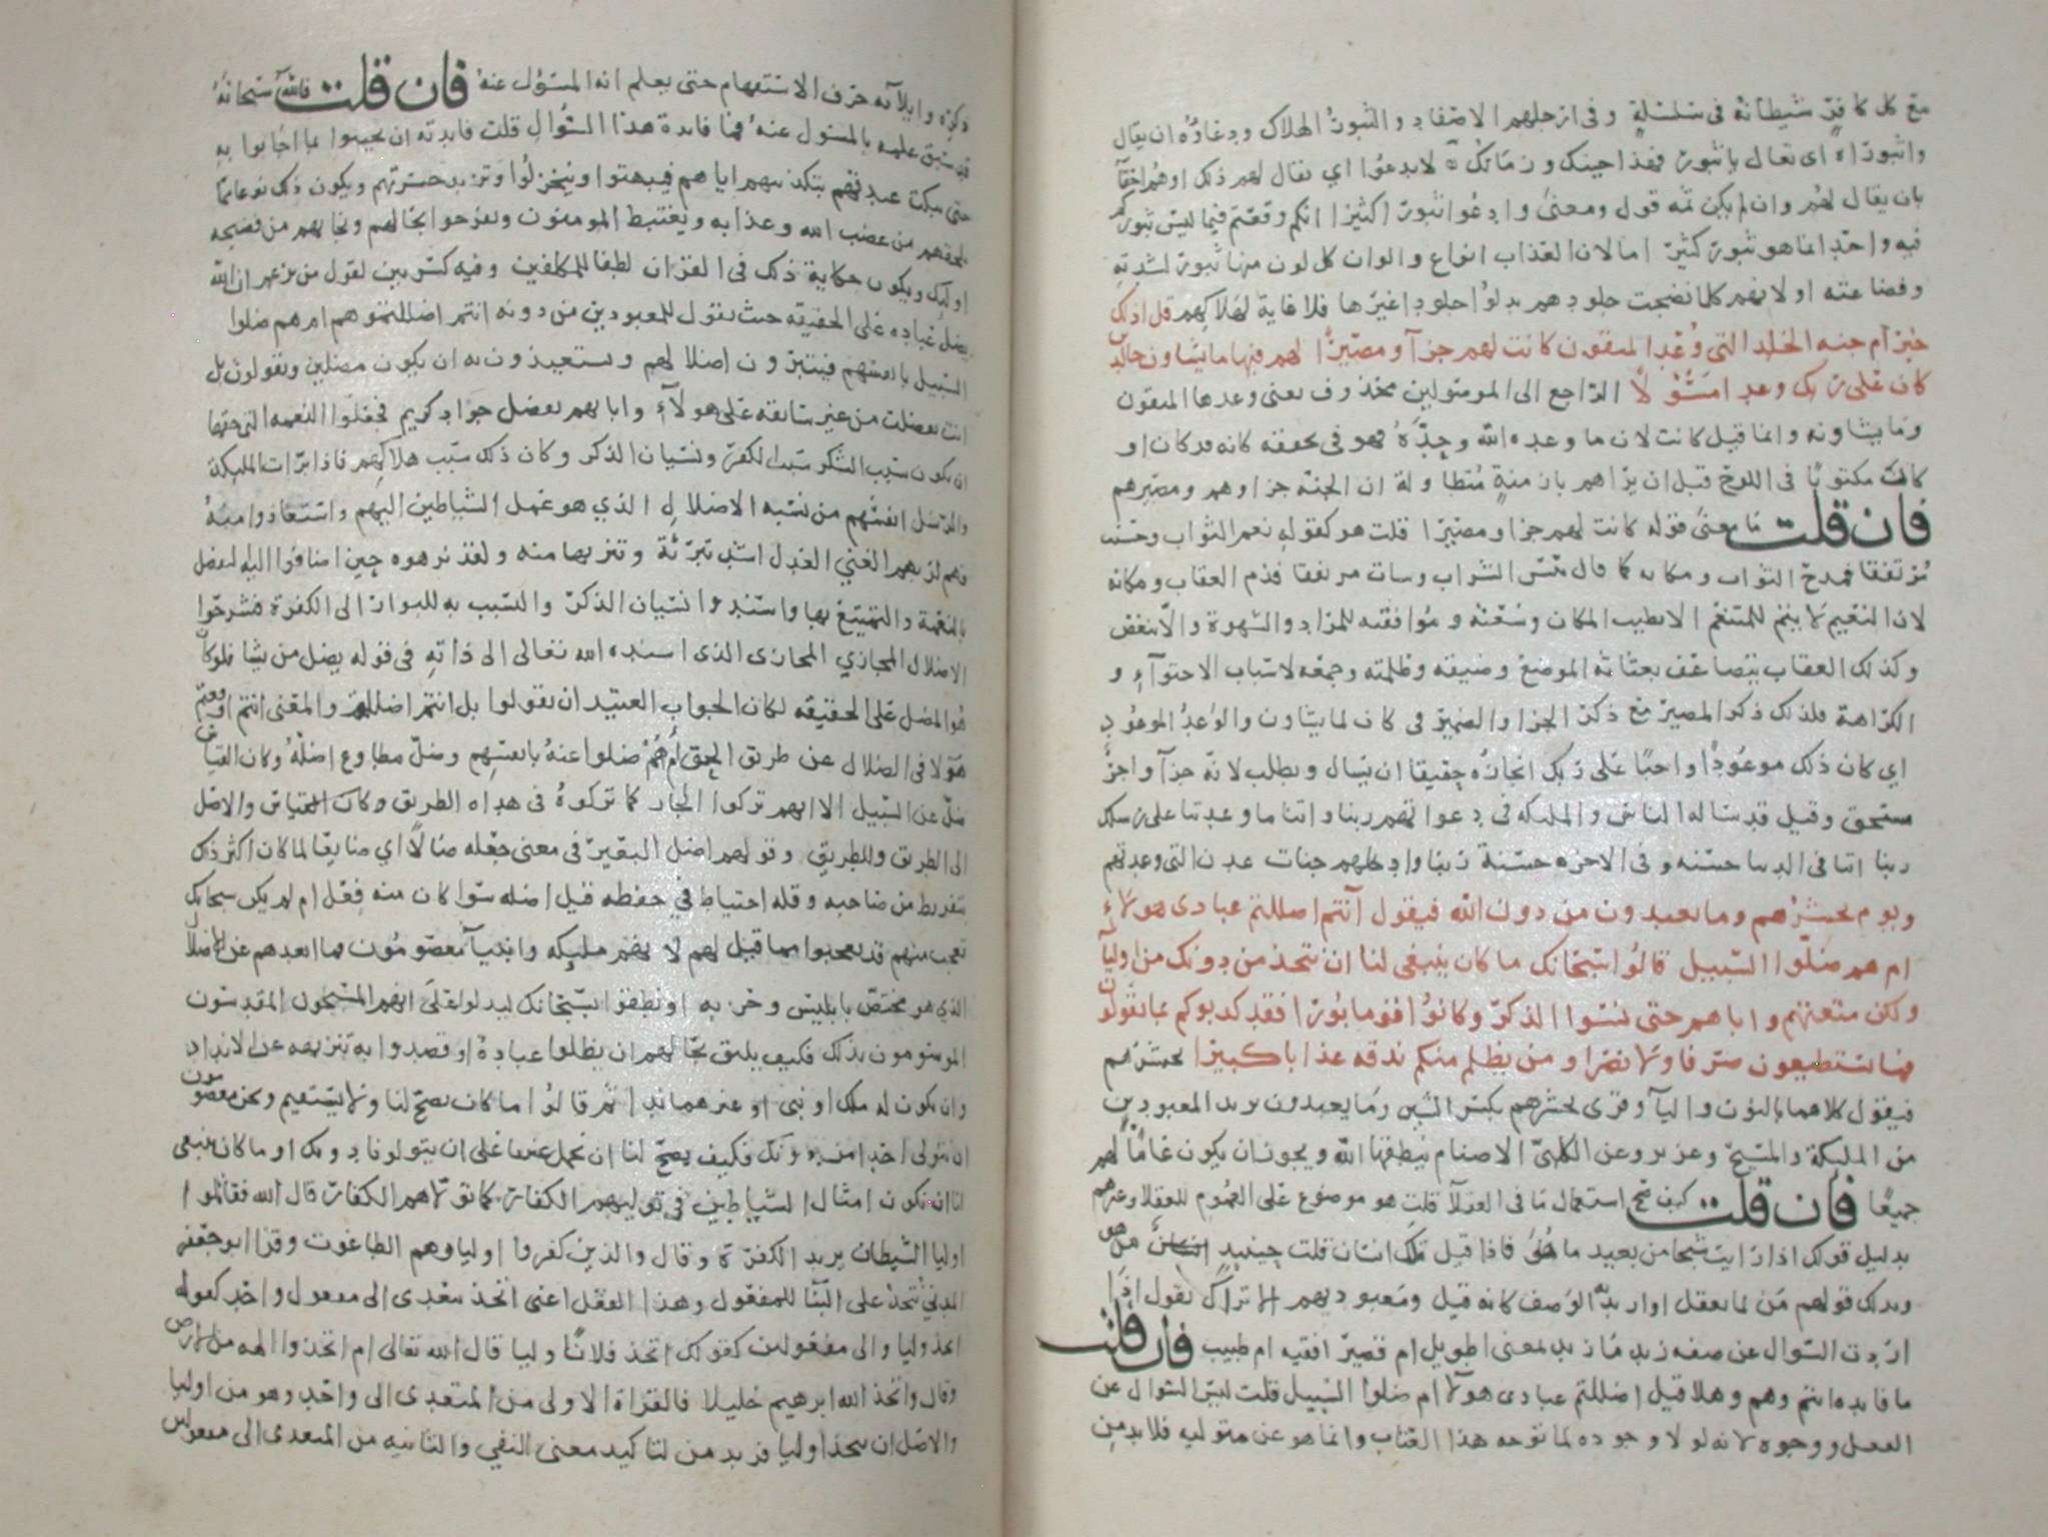 مع كل كافر شيطانه في سلسلة وفي ارجلهم الاصفاد والثبور الهلاك ودعاؤه ان يقال
واثبوراه اى تعال يا ثبور فهذا حينك وزمانك لا تدعوا اي يقال لهم ذلك اوهم احقآ
بان يقال لهم وان لم يكن ثمه قول ومعنى وادعوا ثبورا كثيرا انكم وقعتم فيما ليس ثبوركم
فيه واحدا انما هو ثبور كثير اما لان العذاب انواع والوان كل لون منها ثبور لشدته
وفضاعته او لانهم كلما نضجت جلودهم بدلوا جلودا غيرها فلا غاية لهلاكهم قل اذلك
خير ام جنه الخلد التي وعد المتقون كانت لهم جزآ ومصيرا لهم فيها ما يشاون خالدين
كان على ربك وعدا مسئولا الراجع الى الموصولين محذوف يعنى وعدها المتقون
وما يشاونه وانما قيل كانت لان ما وعده الله وحده فهو في تحققه كانه قد كان او
كانت مكتوبا فى اللوح قبل ان يراهم بازمنة متطاولة ان الجنه جزاوهم ومصيرهم
فان قلت ما معنى قوله كانت لهم جزا ومصيرا قلت هو كقوله نعم الثواب وحسنت
مرتفقا فمدح الثواب ومكانه كما قال بئس الشراب وسات مرتفقا فذم العقاب ومكانه
لان النعيم لا يتم للمتنعم الا بطيب المكان وسعته وموافقته للمراد والشهوة والا تنغص
وكذلك العقاب يتضاعف بغثاثة الموضع وضيقه وظلمته وجمعه لاسباب الاجتوآء و
الكراهة فلذلك ذكر المصير مع ذكر الجزا والضمير في كان لما يشاون والوعد الموعود
اي كان ذلك موعودا واجبا على ربك انجازه حقيقا ان يسال ويطلب لانه جزآ واجر
مستحق وقيل قد ساله الناس والمليكه في دعواتهم ربنا واتنا ما وعدتنا على رسلك
ربنا اتنا فى الدنيا حسنه وفى الاخره حسنة ربنا وادخلهم جنات عدن التى وعدتهم
ويوم نحشرهم وما يعبدون من دون الله فيقول آنتم اضللتم عبادى هولاء
ام هم ضلوا السبيل قالوا سبحانك ما كان ينبغى لنا ان نتخذ من دونك من اوليآ
ولكن متعتهم واباهم حتى نسوا الذكر وكانوا قوما بورا فقد كذبوكم بما تقولون
فما تستطيعون صرفا ولا نصرا ومن يظلم منكم نذقه عذابا كبيرا نحشرهم
فيقول كلاهما بالنون واليآ وقرى نحشرهم بكسر الشين وما يعبدون يريد المعبودين
من المليكة والمسيح وعزير وعن الكلبي الاصنام ينطقها الله ويجوز ان يكون عاما لهم
جميعا فان قلت كيف صح استعمال ما فى العقلآ قلت هو موضوع على العموم للعقلا وغيرهم
بدليل قولك اذا رايت شبحا من بعيد ما هو فاذا قيل لك انسان قلت حينيذ من هو
وبدلك قولهم من لما يعقل او اريد به الوصف كانه قيل ومعبوديهم الا تراك تقول اذا
اردت السوال عن صفه زيد ما زيد بمعنى اطويل ام قصير افقيه ام طبيب فان قلت
ما فايده انتم وهم وهلا قيل اضللتم عبادى هولآ ام ضلوا السبيل قلت ليس السوال عن
الفعل ووجوده لانه لولا وجوده لما توجه هذا العتاب وانما هو عن متوليه فلا بد من
ذكره وايلآئه حرف الاستفهام حتى يعلم انه المسؤل عنه فان قلت فالله سبحانه
قد سبق علمه بالمسئول عنه فما فايدة هذا السؤال قلت فايدته ان يجيبوا بما اجابوا به
حتى يبكت عبدتهم بتكذيبهم اياهم فيبهتوا وينخزلوا وتزيد حسرتهم ويكون ذلك نوعا مما
يلحقهم من غضب الله وعذابه ويغتبط المومنون ويفرحوا بحالهم ونجاتهم من فضيحه
اوليك ويكون حكاية ذلك فى القران لطفا للمكلفين وفيه كسر بين لقول من يزعم ان الله
يضل عباده على الحقيقه حيث يقول للمعبودين من دونه انتم اضللتموهم ام هم ضلوا
السبيل بانفسهم فيتبرون من اضلالهم ويستعيذون به ان يكون مضلين ويقولون بل
انت تفضلت من غير سابقه على هولآء واباهم تفضل جواد كريم فجعلوا النعمه التى حقها
ان يكون سبب الشكر سبب الكفر ونسيان الذكر وكان ذلك سبب هلاكهم فاذا برات المليكة
والرسل انفسهم من نسبه الاضلال الذي هو عمل الشياطين اليهم واستعاذوا منه
فهم لربهم الغني العدل اشد تبرئة وتنزيها منه ولقد نزهوه حين اضافوا اليه التفضل
بالنعمة والتمتيع بها واسندوا نسيان الذكر والتسبب به للبوار الى الكفرة فشرحوا
الاضلال المجازي المجازى الذى اسنده الله تعالى الى ذاته فى قوله يضل من يشا فلو كان
هو المضل على الحقيقه لكان الجواب العتيد ان يقولوا بل انتم اضللتهم والمعنى انتم اوقعتم
هولا فى الضلال عن طريق الحق ام هم ضلوا عنه بانفسهم وضل مطاوع اضله وكان القياس
ضل عن السبيل الا انهم تركوا الجار كما تركوه فى هداه الطريق وكان القياس والاصل
الى الطريق وللطريق وقولهم اضل البعير فى معنى جعله ضالا اي ضايعا لما كان اكثر ذلك
بتفريط من صاحبه وقله احتياط في حفظه قيل اضله سوا كان منه فعل ام لم يكن سبحانك
تعجب منهم قد تعجبوا مما قيل لهم لانهم مليكه وانبيآ معصومون فما ابعدهم عن الاضلال
الذي هو مختص بابليس وحزبه او نطقوا بسبحانك ليدلوا على انهم المسبحون المقدسون
الموسومون بذلك فكيف يليق بحالهم ان يظلوا عبادة او قصدوا به تنزيهه عن الانداد
وان يكون له ملك او نبى او غيرهما ندا ثم قالوا ما كان يصح لنا ولا يستقيم ونحن معصومون
ان نتولى احدا من دونك فكيف يصح لنا ان نحمل غيرنا على ان يتولونا دونك او ما كان ينبغى
لنا ان نكون امثال الشياطين في توليهم الكفار كما تولاهم الكفار قال الله فقاتلوا
اوليا الشيطان يريد الكفرة وقال والذين كفروا اولياوهم الطاغوت وقرا ابو جعفر
المدني نتخذ على البنآ للمفعول وهذا الفعل اعنى اتخذ يتعدى الى مفعول واحد كقوله
اتخذ وليا والى مفعولين كقولك اتخذ فلانا وليا قال الله تعالى ام اتخذوا الهه من الارض
وقال واتخذ الله ابرهيم خليلا فالقراة الاولى من المتعدى الى واحد وهو من اوليا
والاصل ان نتخذ اوليا فزيدت من لتاكيد معنى النفي والثانيه من المتعدى الى مفعولين